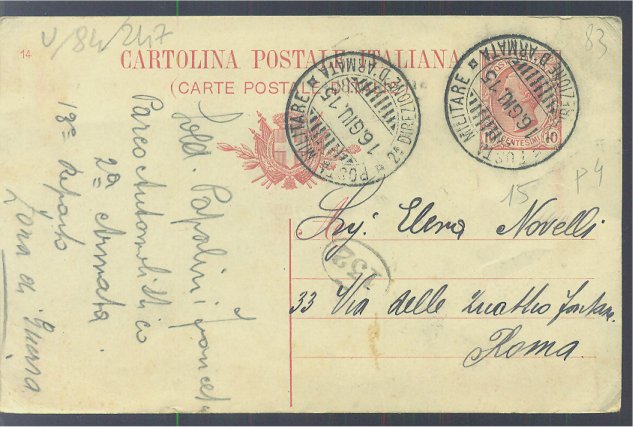 V/84/247
83
14
CARTOLINA POSTALE ITALIANA
(CARTE POSTALE D'ITALIE)
POSTA MILITARE
2ª DIREZIONE D'ARMATA
16 GIU. 15
POSTA MILITARE
DIREZIONE D'ARMATA
16 GIU. 15
CENTESIMI 10
15
P4
Sig. Elena Novelli
152
33 Via delle Quattro fontane
Roma
Sold. Papalini
2ª Armata
Parco Automobilistico
13º
Zona di Guerra